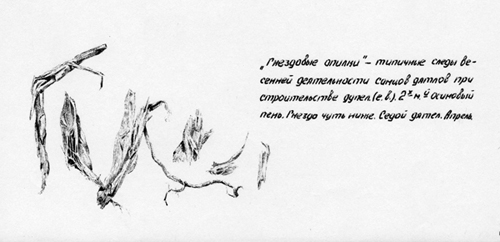 „Гнездовые опилки" – типичные следы ве-
сенней деятельности самцов дятлов при
строительстве дупел (е.в). 2х м й осиновый
пень. Гнездо чуть ниже. Седой дятел. Апрель.